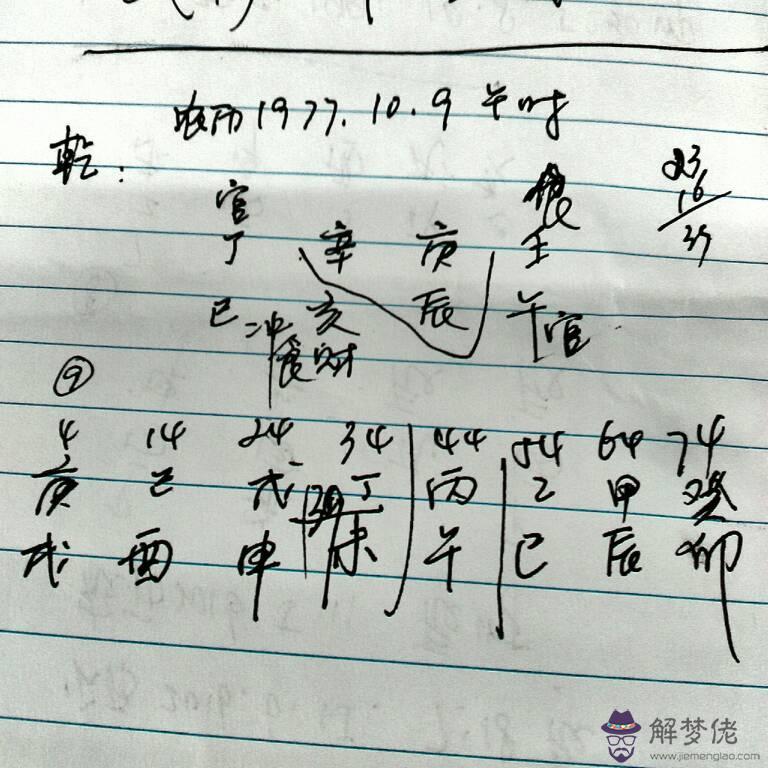 农历1977.10.9 午时
乾:
23
16
官 食
丁 辛 庚 壬
39
巳 冲 亥 辰 午官
食财
⑨
4 14 24 34 44 54 64 74
庚 己 戊 丁 丙 乙 甲 癸
戌 酉 申 未 午 巳 辰 卯
解梦佬
www.jiemenglao.com